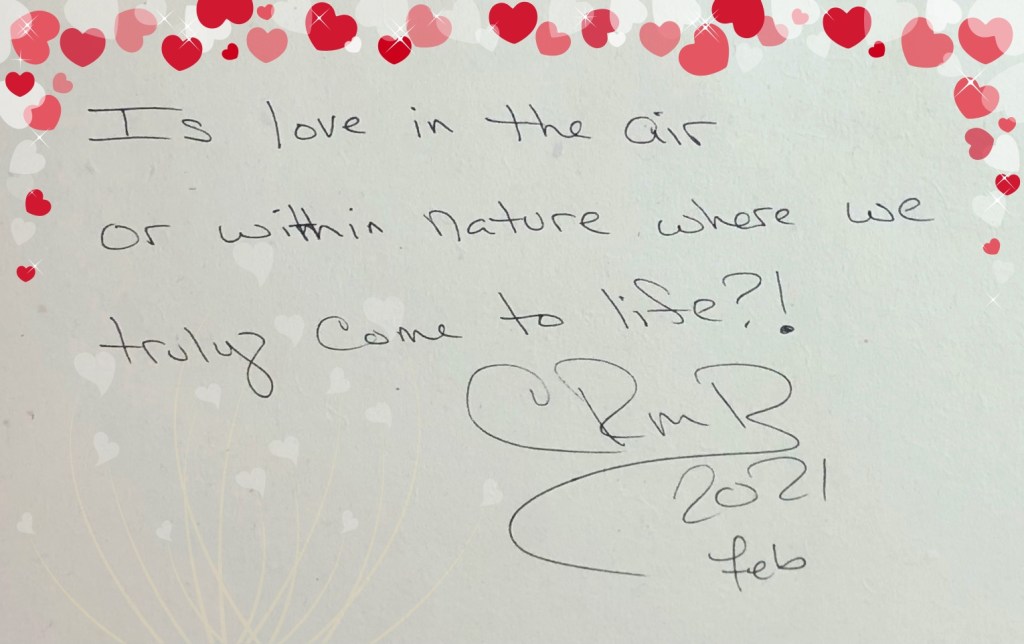 Is love in the air
or within nature where we
truly come to life?!
CRmB
2021
feb